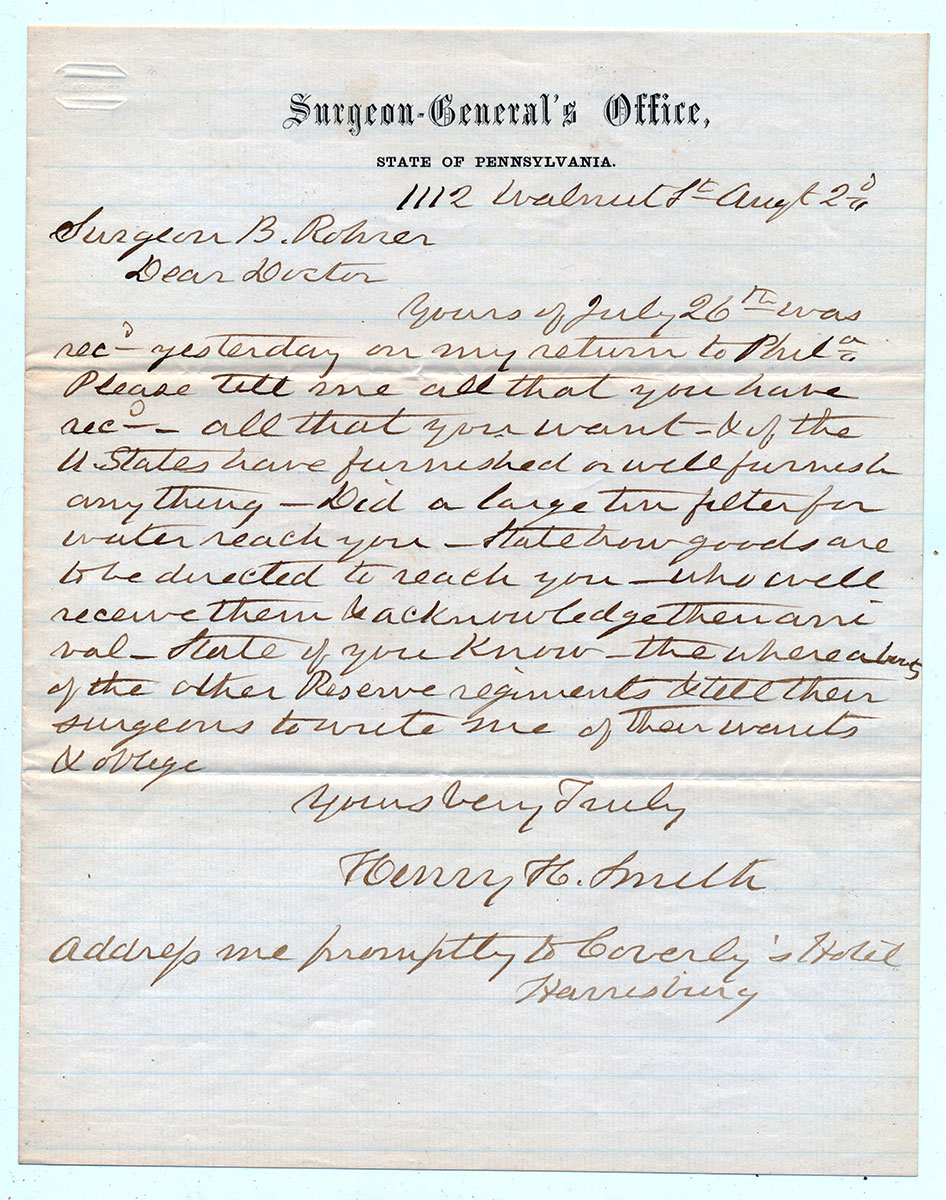 Surgeon-General's Office,
STATE OF PENNSYLVANIA.
1112 Walnut St Augt 2d
Surgeon B. Rohrer
Dear Doctor
Yours of July 26th was
recd yesterday on my return to Phila
Please tell me all that you have
recd - all that you want - & if the
U. States have furnished or will furnish
anything - Did a large tin filter for
water reach you - State how goods are
to be directed to reach you - who will
receive them & acknowledge their arri
val - State if you Know - the whereabouts
of the other Reserve regiments & tell their
surgeons to write me of their wants
& oblige
Yours very Truly
Henry H. Smith
Address me promptly to Coverly's Hotel
Harrisburg